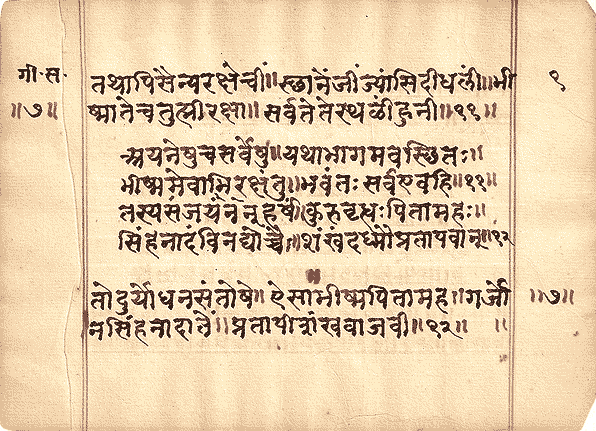 गी. स. तथापि सैन्यरक्षेची॥ स्छानें जीं ज्यांसि दीधलीं॥ भी ९
॥७॥ ष्मातेंच तुह्मी रक्षा॥ सर्वतें ते स्थळींहुनी॥११॥
अयनेषुच सर्वेषु॥ यथाभागमवस्छितः॥
भीष्ममेवाभिरक्षंतु॥ भवंतः सर्वएवहि॥११॥
तस्य हर्षं कुरुवृधः पितामहः॥
सिंहनादं विनद्योच्चैः॥ शंखं दध्मौ प्रतापवान्॥१२
॥
तो दुर्योधन संतोषे॥ ऐसा भीष्मपितामह॥ गर्जो ॥७॥
न सिंहनादानें॥ प्रतापी शंख वाजवी॥१२॥ ॥